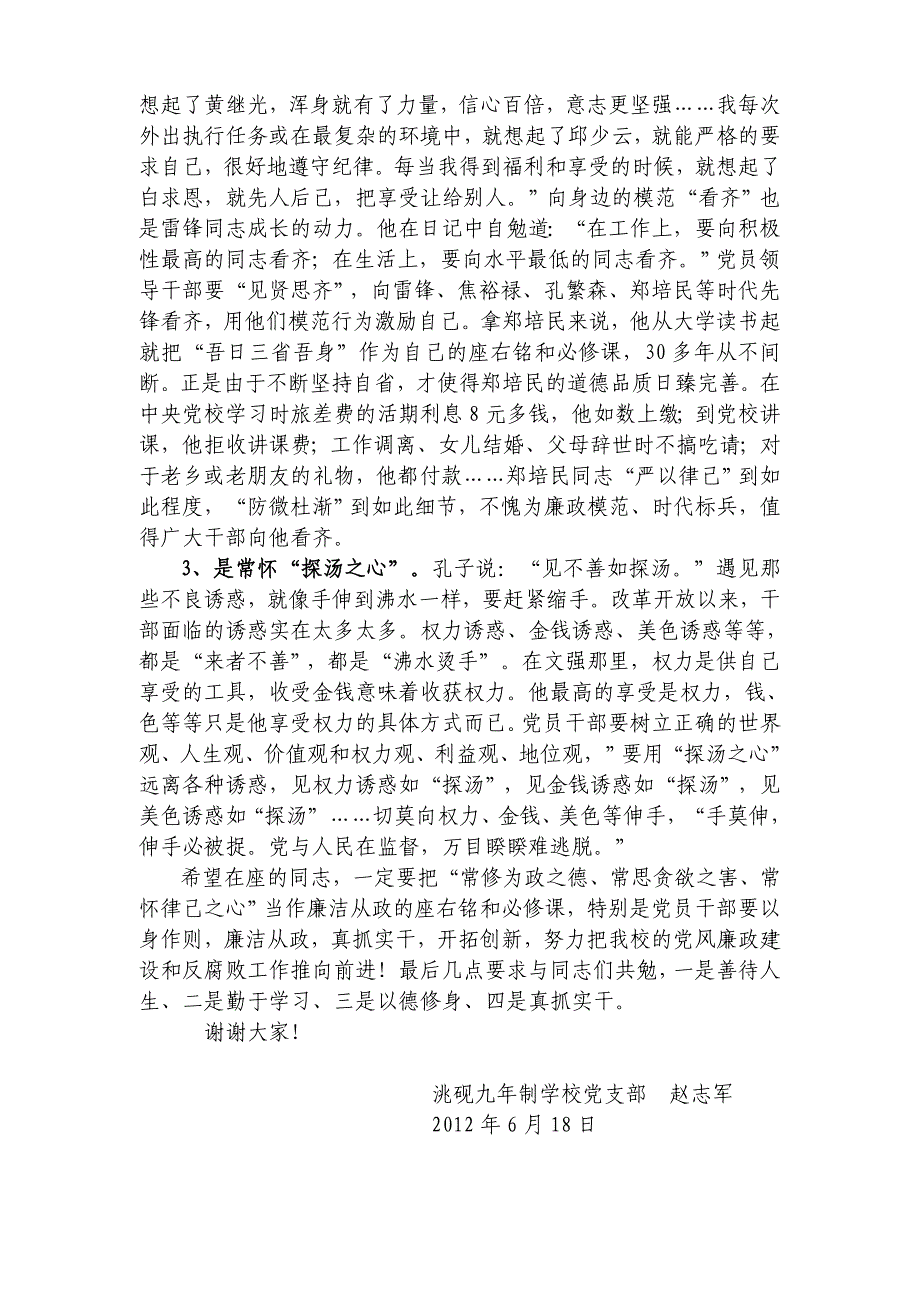 想起了黄继光，浑身就有了力量，信心百倍，意志更坚强……我每次
外出执行任务或在最复杂的环境中，就想起了邱少云，就能严格的要
求自己，很好地遵守纪律。每当我得到福利和享受的时候，就想起了
白求恩，就先人后己，把享受让给别人。”向身边的模范“看齐”也
是雷锋同志成长的动力。他在日记中自勉道：“在工作上，要向积极
性最高的同志看齐；在生活上，要向水平最低的同志看齐。”党员领
导干部要“见贤思齐”，向雷锋、焦裕禄、孔繁森、郑培民等时代先
锋看齐，用他们模范行为激励自己。拿郑培民来说，他从大学读书起
就把“吾日三省吾身”作为自己的座右铭和必修课，30 多年从不间
断。正是由于不断坚持自省，才使得郑培民的道德品质日臻完善。在
中央党校学习时旅差费的活期利息 8 元多钱，他如数上缴；到党校讲
课，他拒收讲课费；工作调离、女儿结婚、父母辞世时不搞吃请；对
于老乡或老朋友的礼物，他都付款……郑培民同志“严以律己”到如
此程度，“防微杜渐”到如此细节，不愧为廉政模范、时代标兵，值
得广大干部向他看齐。
3、是常怀“探汤之心”。孔子说：“见不善如探汤。”遇见那
些不良诱惑，就像手伸到沸水一样，要赶紧缩手。改革开放以来，干
部面临的诱惑实在太多太多。权力诱惑、金钱诱惑、美色诱惑等等，
都是“来者不善”，都是“沸水烫手”。在文强那里，权力是供自己
享受的工具，收受金钱意味着收获权力。他最高的享受是权力，钱、
色等等只是他享受权力的具体方式而已。党员干部要树立正确的世界
观、人生观、价值观和权力观、利益观、地位观，”要用“探汤之心”
远离各种诱惑，见权力诱惑如“探汤”，见金钱诱惑如“探汤”，见
美色诱惑如“探汤”……切莫向权力、金钱、美色等伸手，“手莫伸，
伸手必被捉。党与人民在监督，万目睽睽难逃脱。”
希望在座的同志，一定要把“常修为政之德、常思贪欲之害、常
怀律己之心”当作廉洁从政的座右铭和必修课，特别是党员干部要以
身作则，廉洁从政，真抓实干，开拓创新，努力把我校的党风廉政建
设和反腐败工作推向前进！最后几点要求与同志们共勉，一是善待人
生、二是勤于学习、三是以德修身、四是真抓实干。
谢谢大家！
洮砚九年制学校党支部　赵志军
2012 年 6 月 18 日